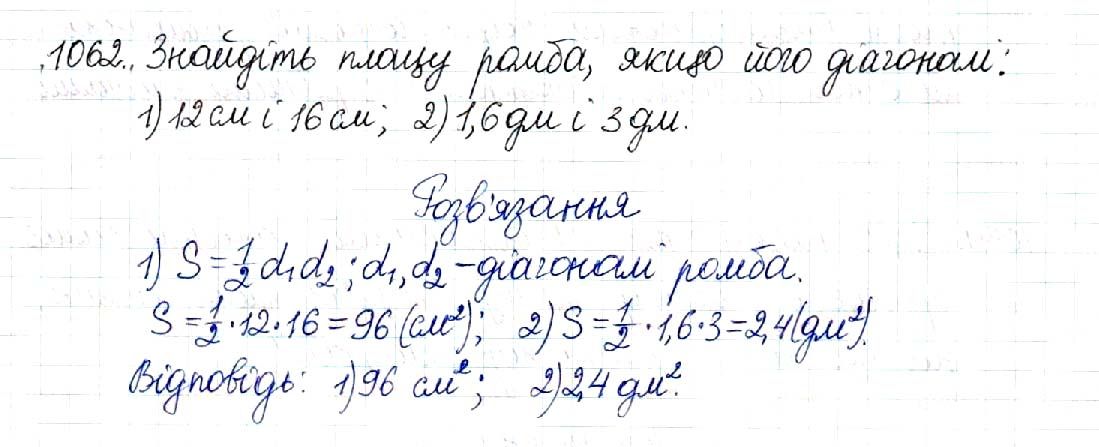 1062. Знайдіть площу ромба, якщо його діагоналі:
1) 12 см і 16 см; 2) 1,6 дм і 3 дм.
Розв'язання
1) S = 1/2 d₁d₂; d₁, d₂ – діагоналі ромба.
S = 1/2 · 12 · 16 = 96 (см²); 2) S = 1/2 · 1,6 · 3 = 2,4 (дм²).
Відповідь: 1) 96 см²; 2) 2,4 дм².